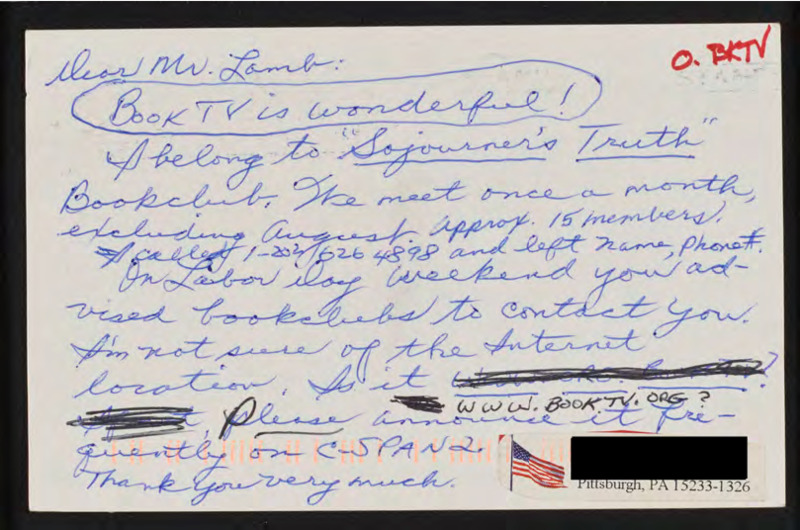 O. BKTV
Dear Mr. Lamb:
Book TV is wonderful!
I belong to "Sojourner's Truth"
Bookclub. We meet once a month,
excluding August. Approx. 15 members.
I called 1-202/626 4898 and left name, phone#.
On Labor Day weekend you ad-
vised bookclubs to contact you.
I'm not sure of the Internet
location. Is it ?
WWW.BOOKTV.ORG?
Please announce it fre-
quently on C-SPAN2.
Thank you very much.
Pittsburgh, PA 15233-1326